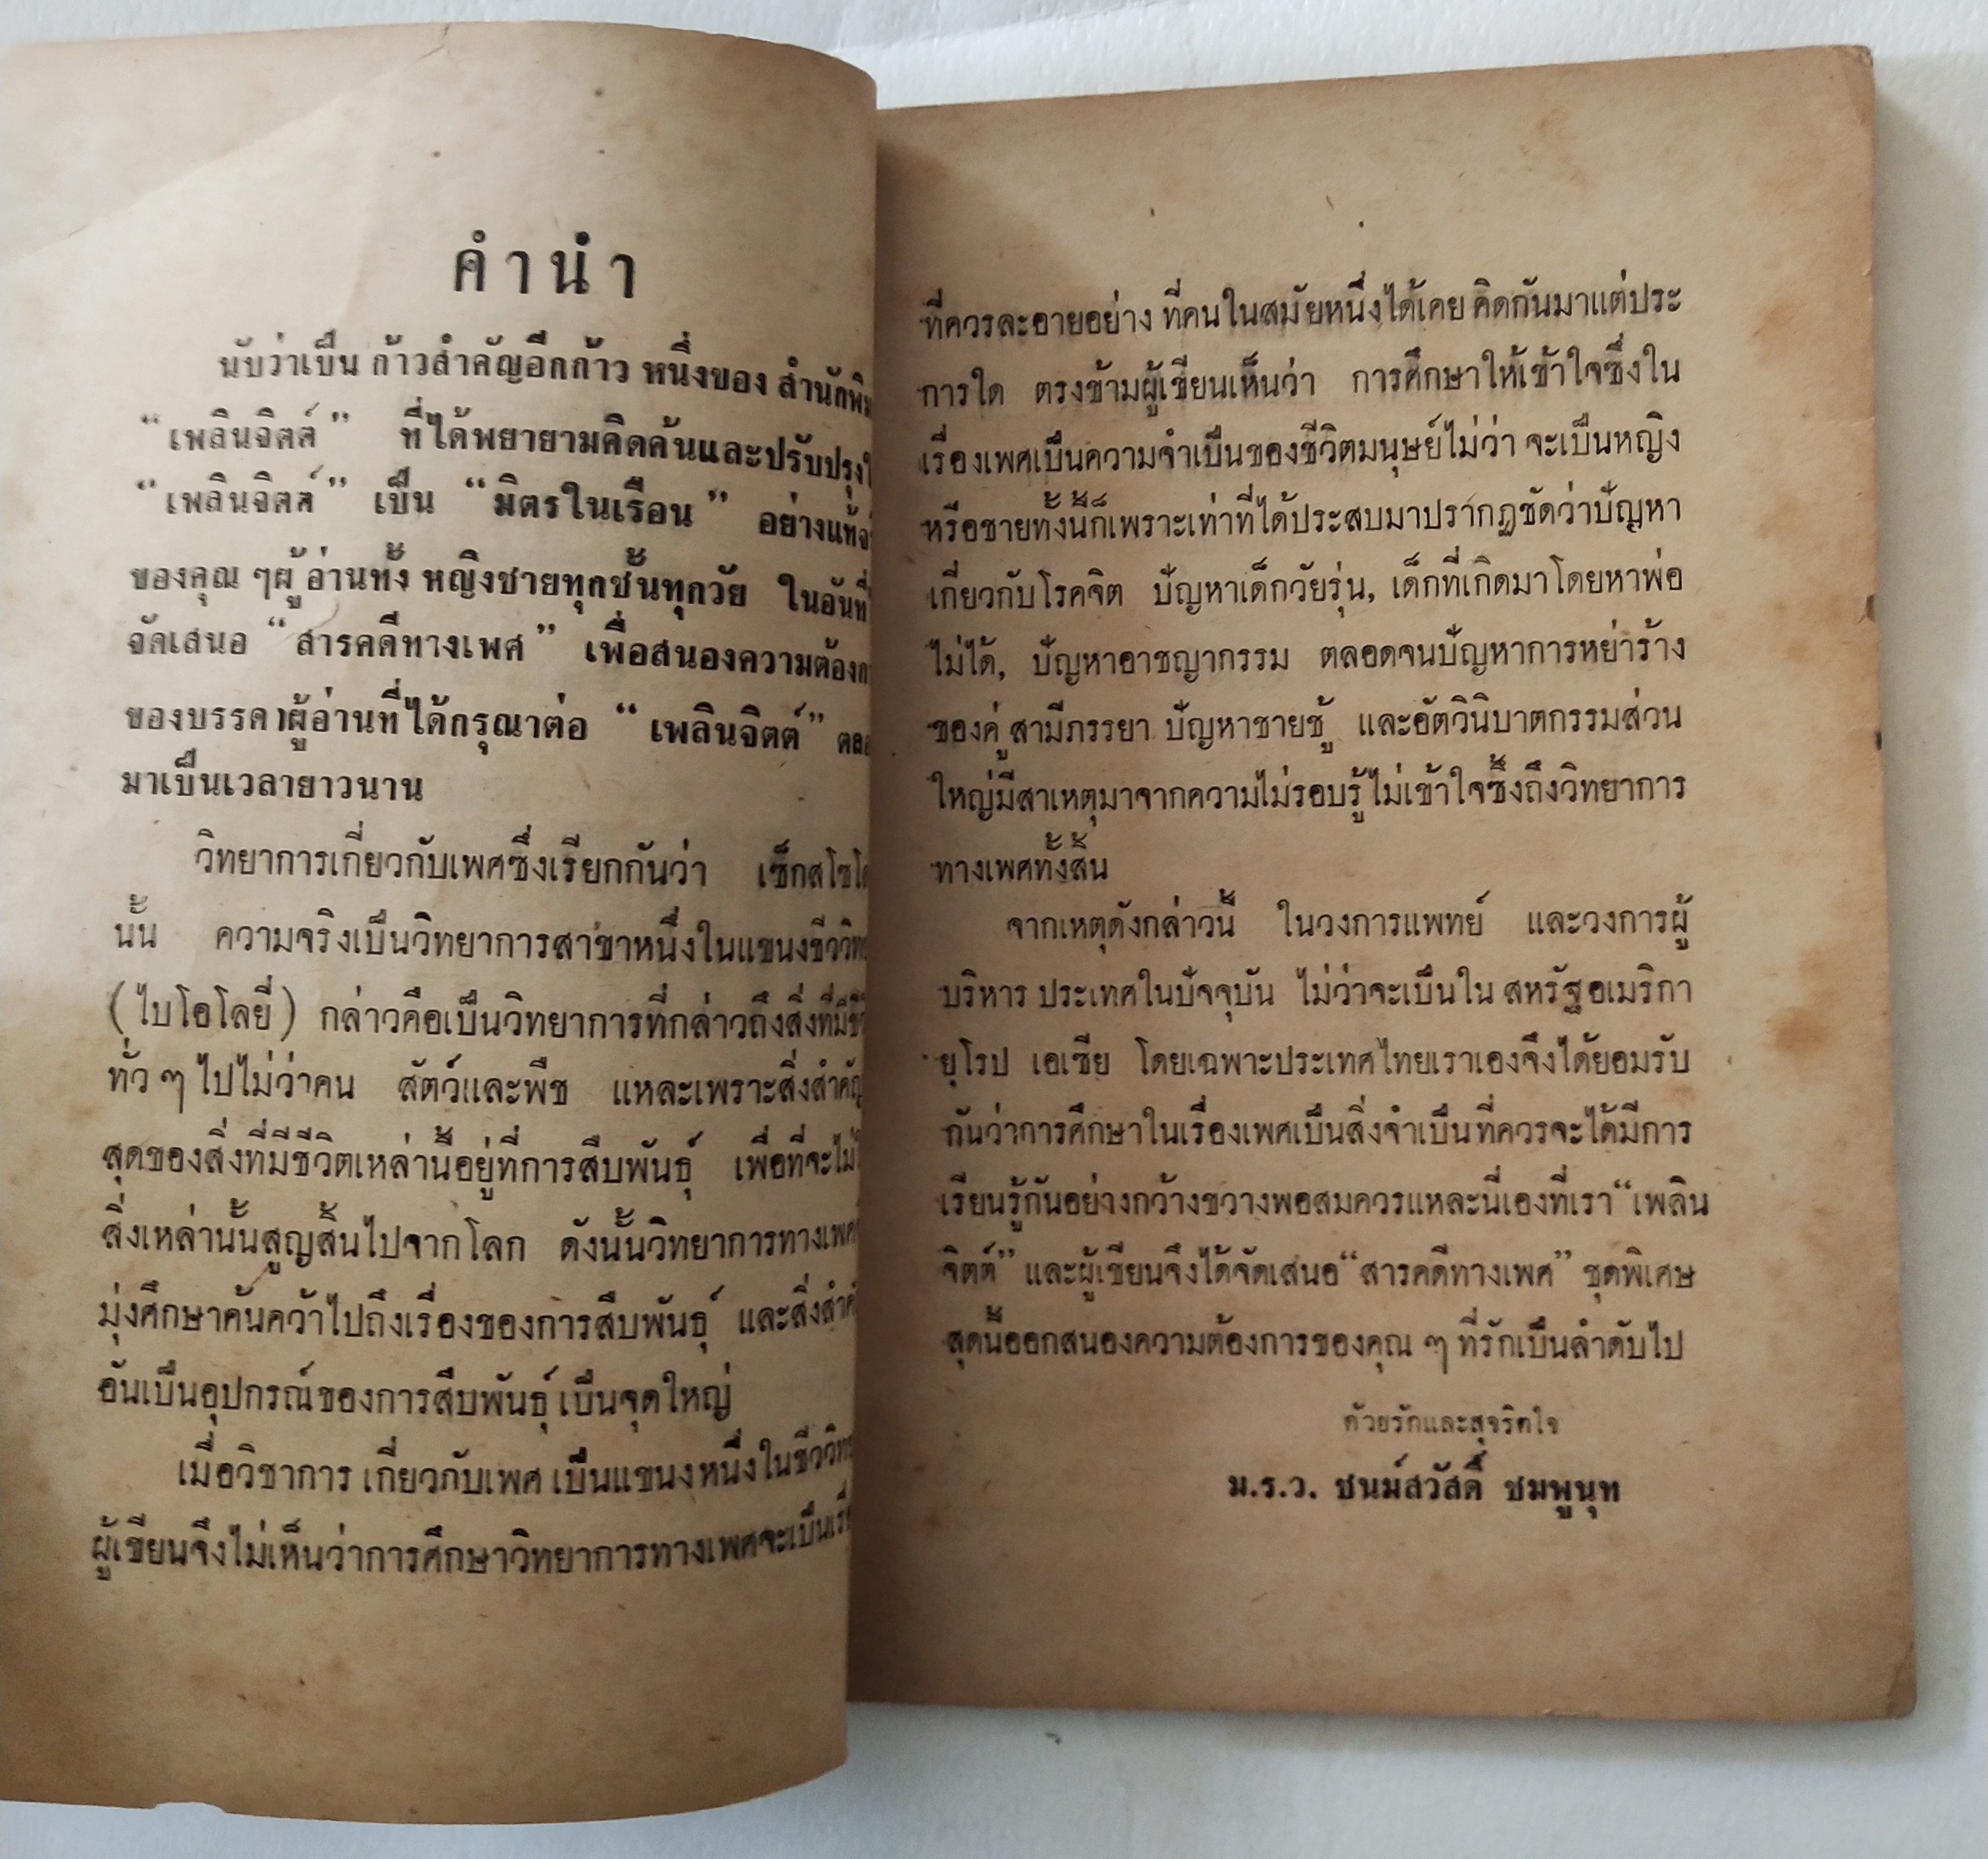 คำนำ
นับว่าเป็น ก้าวสำคัญอีกก้าว หนึ่งของ
“เพลินจิตต์” ที่ได้พยายามคิดค้นและปรับปรุง
“เพลินจิตต์” เป็น “มิตรในเรือน” อย่างแท้
ของคุณ ๆผู้อ่านทั้ง หญิงชายทุกชั้นทุกวัย ในอันที่
จัดเสนอ “สารคดีทางเพศ” เพื่อสนองความต้อง
ของบรรดาผู้อ่านที่ได้กรุณาต่อ “เพลินจิตต์”
มาเป็นเวลายาวนาน
วิทยาการเกี่ยวกับเพศซึ่งเรียกกันว่า
นั้น ความจริงเป็นวิทยาการสาขาหนึ่งในแขนง
(ไบโอโลยี่) กล่าวคือเป็นวิทยาการที่กล่าวถึงสิ่งที่มี
ทั่ว ๆ ไปไม่ว่าคน สัตว์และพืช แหละเพราะสิ่งสำคัญ
สุดของสิ่งที่มีชีวิตเหล่านี้อยู่ที่การสืบพันธุ์ เพื่อที่จะไม่
สิ่งเหล่านั้นสูญสิ้นไปจากโลก ดังนั้นวิทยาการทางเพศ
มุ่งศึกษาค้นคว้าไปถึงเรื่องของการสืบพันธุ์ และสิ่ง
อันเป็นอุปกรณ์ของการสืบพันธุ์ เป็นจุดใหญ่
เมื่อวิชาการ เกี่ยวกับเพศ เป็นแขนงหนึ่งใน
ผู้เขียนจึงไม่เห็นว่าการศึกษาวิทยาการทางเพศจะเป็น
ที่ควรละอายอย่าง ที่คนในสมัยหนึ่งได้เคย คิดกันมาแต่ประ
การใด ตรงข้ามผู้เขียนเห็นว่า การศึกษาให้เข้าใจซึ่งใน
เรื่องเพศเป็นความจำเป็นของชีวิตมนุษย์ไม่ว่า จะเป็นหญิง
หรือชายทั้งนี้ก็เพราะเท่าที่ได้ประสบมาปรากฏชัดว่าปัญหา
เกี่ยวกับโรคจิต ปัญหาเด็กวัยรุ่น, เด็กที่เกิดมาโดยหาพ่อ
ไม่ได้, ปัญหาอาชญากรรม ตลอดจนปัญหาการหย่าร้าง
ของคู่ สามีภรรยา ปัญหาชายชู้ และอัตวินิบาตกรรมส่วน
ใหญ่มีสาเหตุมาจากความไม่รอบรู้ไม่เข้าใจซึ้งถึงวิทยาการ
ทางเพศทั้งสิ้น
จากเหตุดังกล่าวนี้ ในวงการแพทย์ และวงการผู้
บริหาร ประเทศในปัจจุบัน ไม่ว่าจะเป็นใน สหรัฐอเมริกา
ยุโรป เอเซีย โดยเฉพาะประเทศไทยเราเองจึงได้ยอมรับ
กันว่าการศึกษาในเรื่องเพศเป็นสิ่งจำเป็นที่ควรจะได้มีการ
เรียนรู้กันอย่างกว้างขวางพอสมควรแหละนี่เองที่เรา “เพลิน
จิตต์” และผู้เขียนจึงได้จัดเสนอ “สารคดีทางเพศ” ชุดพิเศษ
สุดนี้ออกสนองความต้องการของคุณ ๆ ที่รักเป็นลำดับไป
ด้วยรักและสุจริตใจ
ม.ร.ว. ชนม์สวัสดิ์ ชมพูนุท